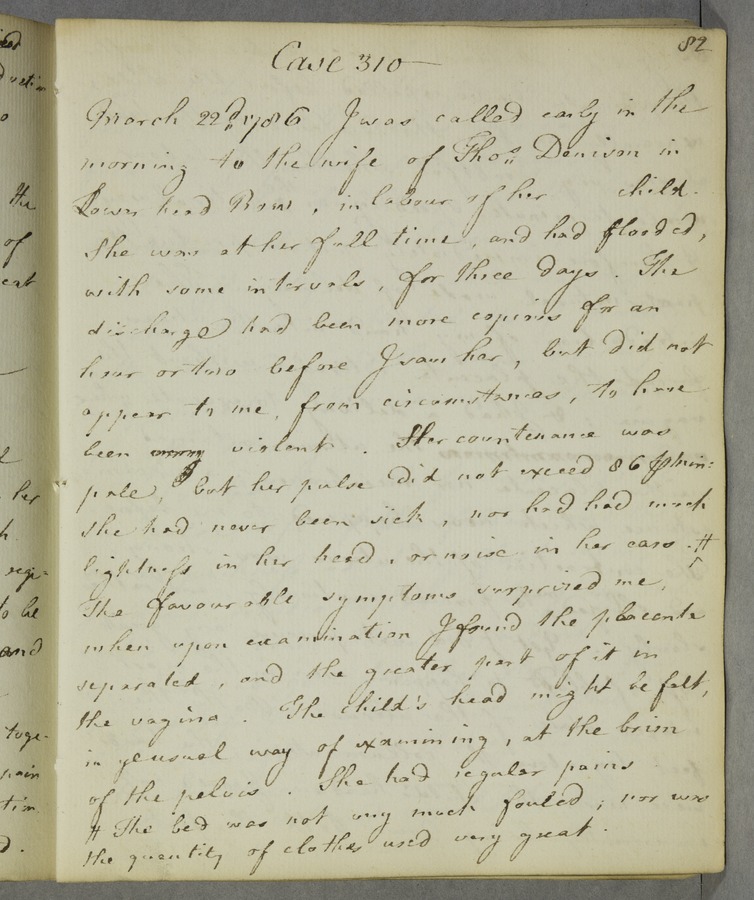 82
Case 310
March 22d. 1786 I was called early in the
morning to the wife of Thos. Denison in
Lower head Row, in labour of her child.
She was at her full time, and had flooded,
with some intervals, for three days. The
discharge had been more copious for an
hour or two before I saw her, but did not
appear to me, from circumstances, to have
been violent. Her countenance was
pale, but her pulse did not exceed 86 P min:
she had never been sick, nor had had much
lightness in her head, or noise in her ears. #
The favourable symptoms surprized me,
when upon examination I found the placenta
separated, and the greater part of it in
the vagina. The child's head might be felt,
in ye usual way of examining, at the brim
of the pelvis. She had regular pains
# The bed was not very much fouled; nor was
the quantity of clothes used very great.
her
the
of
to be
and
toge-
pain